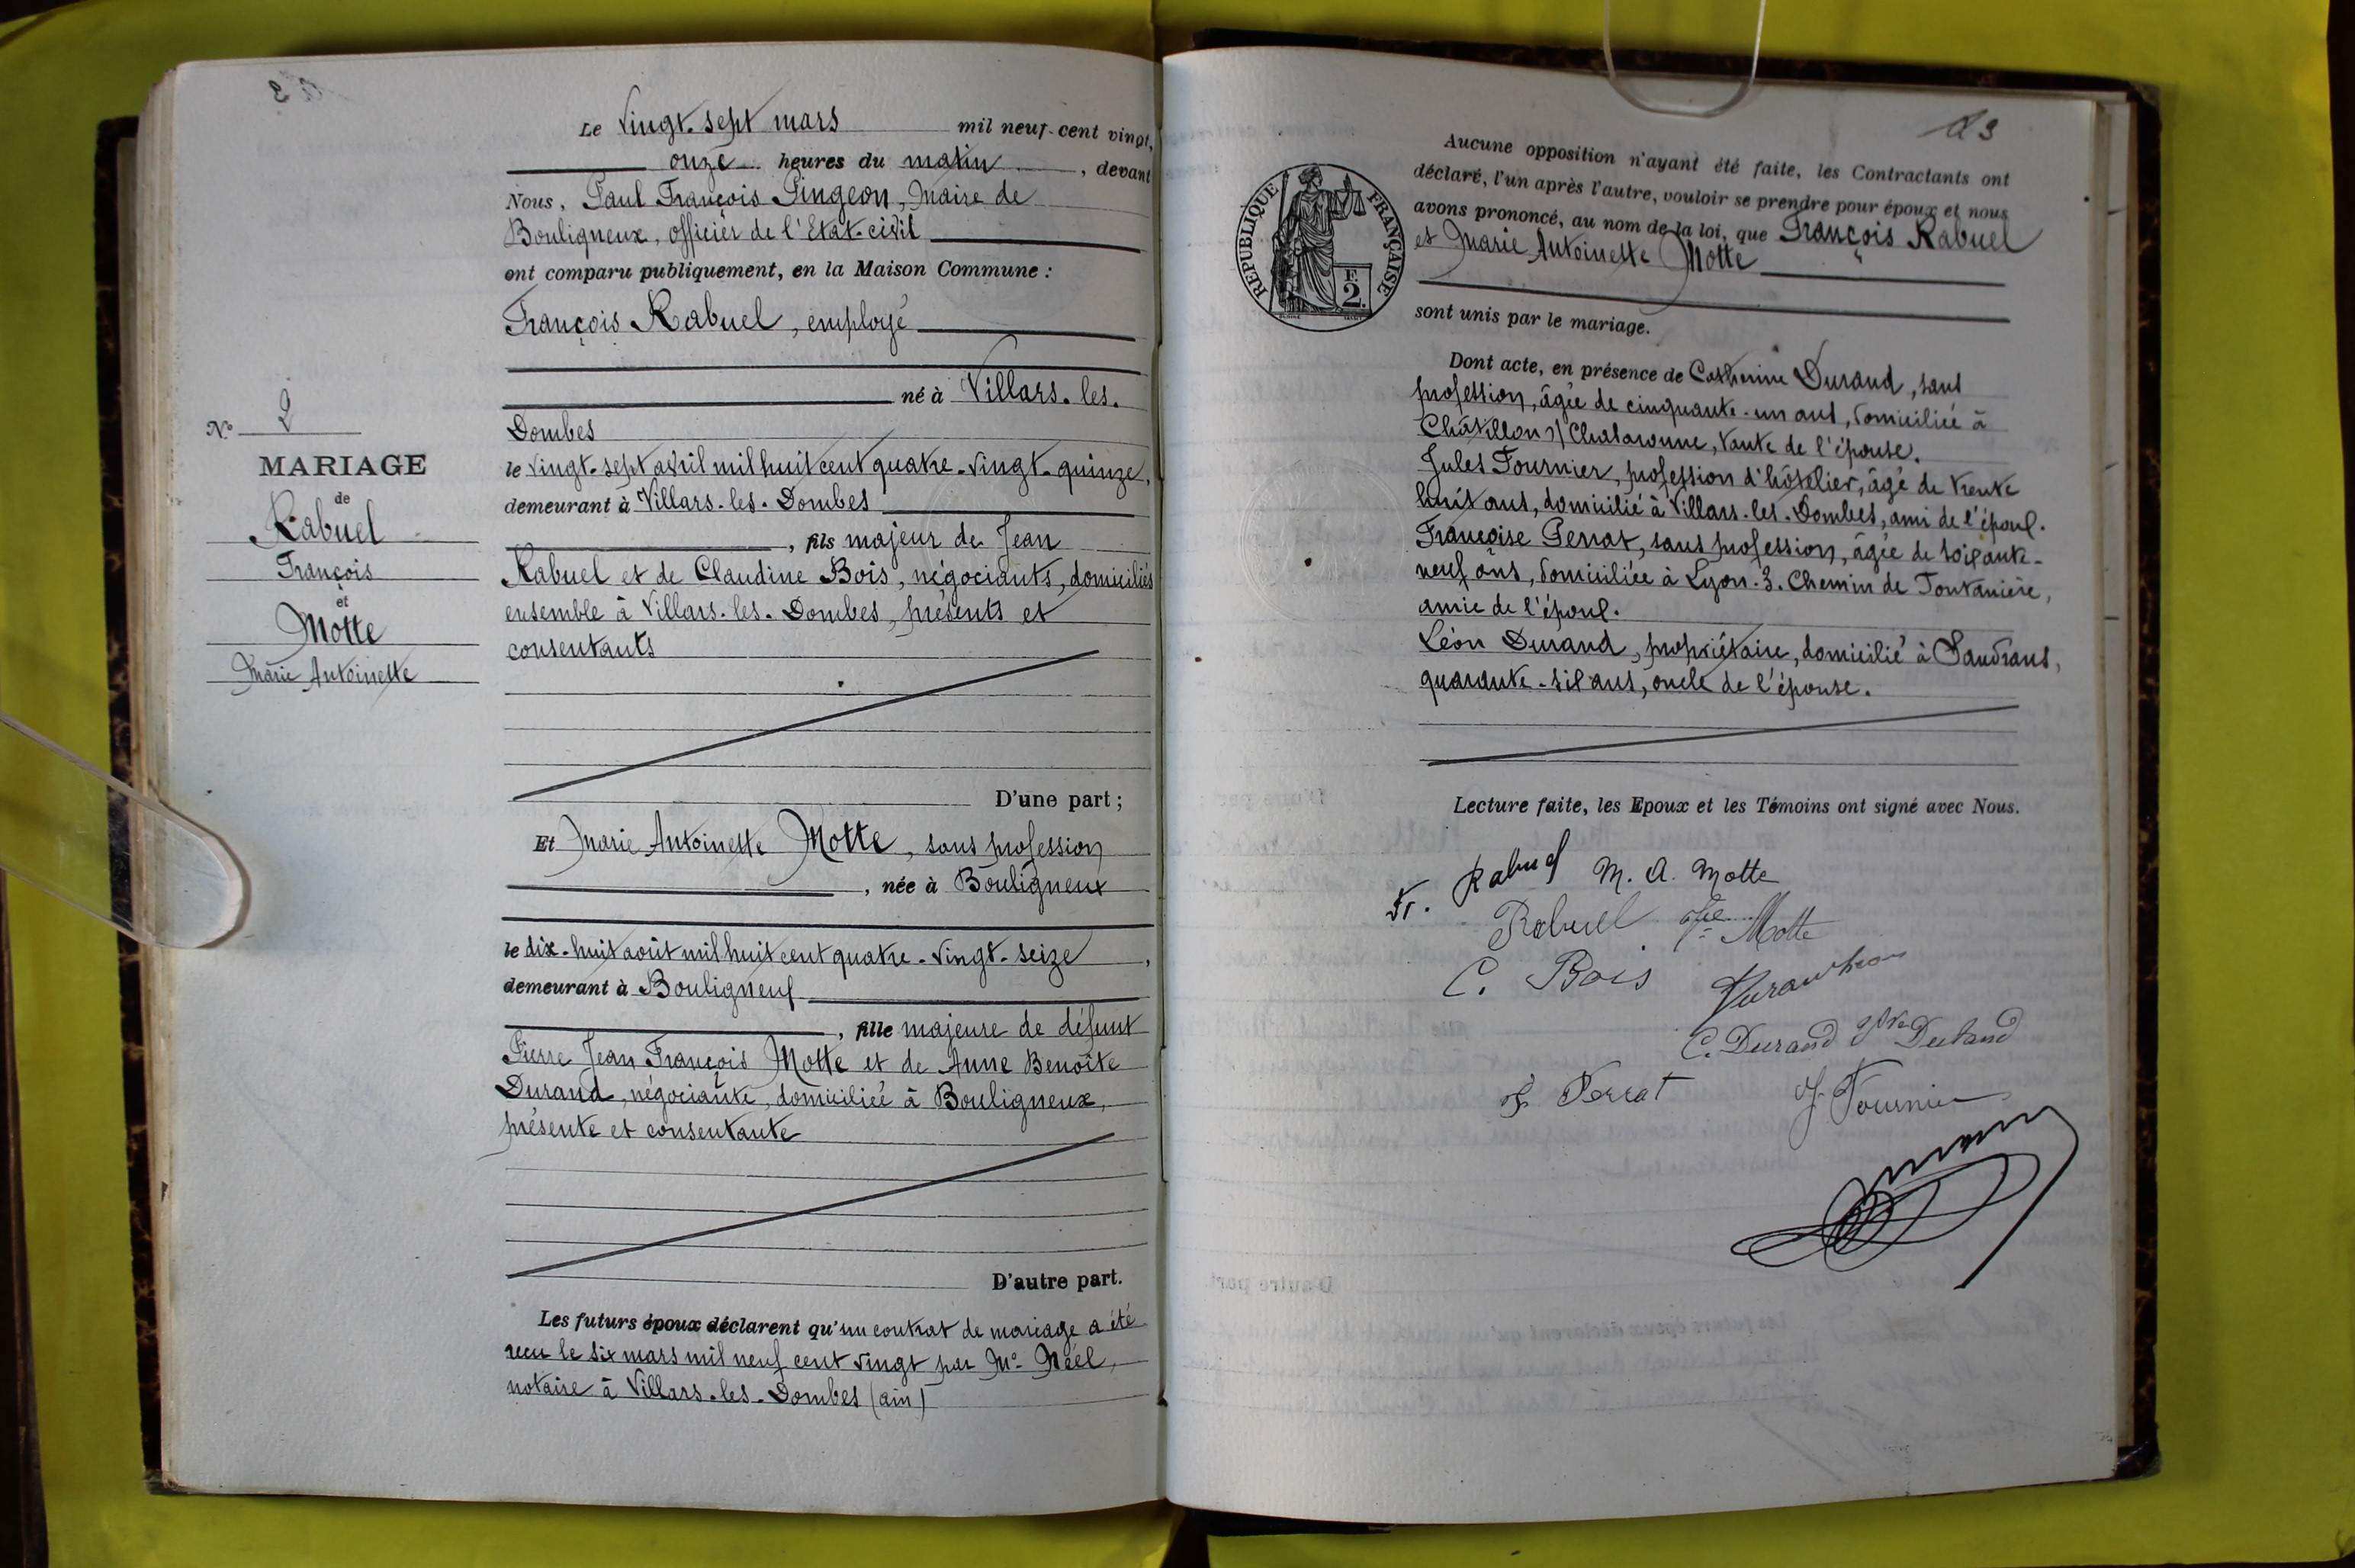 Le vingt-sept mars mil neuf-cent vingt,
onze heures du matin, devant
Nous, Paul François Pingeon, Maire de
Bouligneux, officier de l'Etat-civil
ont comparu publiquement, en la Maison Commune :
François Rabuel, employé
né à Villars-les-
Nº 2
Dombes
MARIAGE
le vingt-sept avril mil huit cent quatre-vingt-quinze,
de
demeurant à Villars-les-Dombes
Rabuel
, fils majeur de Jean
François
Rabuel et de Claudine Bois, négociants, domiciliés
et
ensemble à Villars-les-Dombes, présents et
Motte
consentants
Marie Antoinette
D'une part ;
Et Marie Antoinette Motte, sans profession
, née à Bouligneux
le dix-huit août mil huit cent quatre-vingt-seize,
demeurant à Bouligneux
, fille majeure de défunt
Pierre Jean François Motte et de Anne Benoîte
Durand, négociante, domiciliée à Bouligneux,
présente et consentante
D'autre part.
Les futurs époux déclarent qu'un contrat de mariage a été
reçu le six mars mil neuf cent vingt par Me Néel,
notaire à Villars-les-Dombes (ain)
Aucune opposition n'ayant été faite, les Contractants ont
déclaré, l'un après l'autre, vouloir se prendre pour époux et nous
avons prononcé, au nom de la loi, que François Rabuel
et Marie Antoinette Motte
RÉPUBLIQUE FRANÇAISE
E
2.
sont unis par le mariage.
Dont acte, en présence de Catherine Durand, sans
profession, âgée de cinquante-un ans, domiciliée à
Châtillon s/ Chalaronne, tante de l'épouse.
Jules Fournier, profession d'hôtelier, âgé de trente
huit ans, domicilié à Villars-les-Dombes, ami de l'époux.
Françoise Perrat, sans profession, âgée de soixante-
neuf ans, domiciliée à Lyon-3. Chemin de Fontanière,
amie de l'époux.
Léon Durand, propriétaire, domicilié à Sandrans,
quarante-six ans, oncle de l'épouse.
Lecture faite, les Epoux et les Témoins ont signé avec Nous.
Fr. Rabuel M. A. Motte
Rabuel Vve Motte
C. Bois
C. Durand Durand
F. Perrat J. Fournier